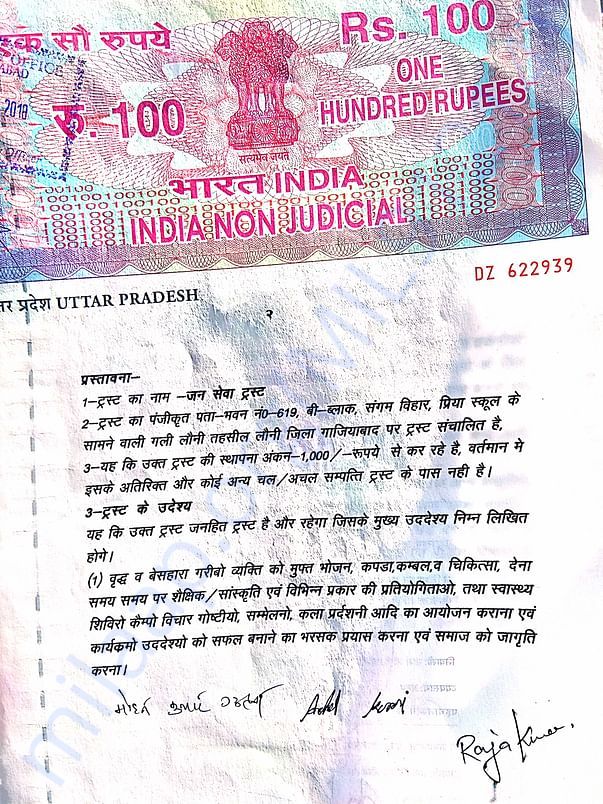 एक सौ रुपये
Rs. 100
OFFICE
2018
रु. 100
ONE
HUNDRED RUPEES
सत्यमेव जयते
भारत INDIA
INDIA NON JUDICIAL
DZ 622939
उत्तर प्रदेश UTTAR PRADESH
२
प्रस्तावना–
1–ट्रस्ट का नाम –जन सेवा ट्रस्ट
2–ट्रस्ट का पंजीकृत पता–भवन नं0–619, बी–ब्लाक, संगम विहार, प्रिया स्कूल के
सामने वाली गली लौनी तहसील लौनी जिला गाजियाबाद पर ट्रस्ट संचालित है,
3–यह कि उक्त ट्रस्ट की स्थापना अंकन–1,000/–रूपये से कर रहे है, वर्तमान मे
इसके अतिरिक्त और कोई अन्य चल/अचल सम्पत्ति ट्रस्ट के पास नही है।
3–ट्रस्ट के उदेश्य
यह कि उक्त ट्रस्ट जनहित ट्रस्ट है और रहेगा जिसके मुख्य उददेश्य निम्न लिखित
होगे।
(1) वृद्ध व बेसहारा गरीबो व्यक्ति को मुफ्त भोजन, कपडा,कम्बल,व चिकित्सा, देना
समय समय पर शैक्षिक/सांस्कृति एवं विभिन्न प्रकार की प्रतियोगिताओ, तथा स्वास्थ्य
शिविरो कैम्पो विचार गोष्टीयो, सम्मेलनो, कला प्रर्दशनी आदि का आयोजन कराना एवं
कार्यक्रमो उददेश्यो को सफल बनाने का भरसक प्रयास करना एवं समाज को जागृति
करना।
Raja Kumar.